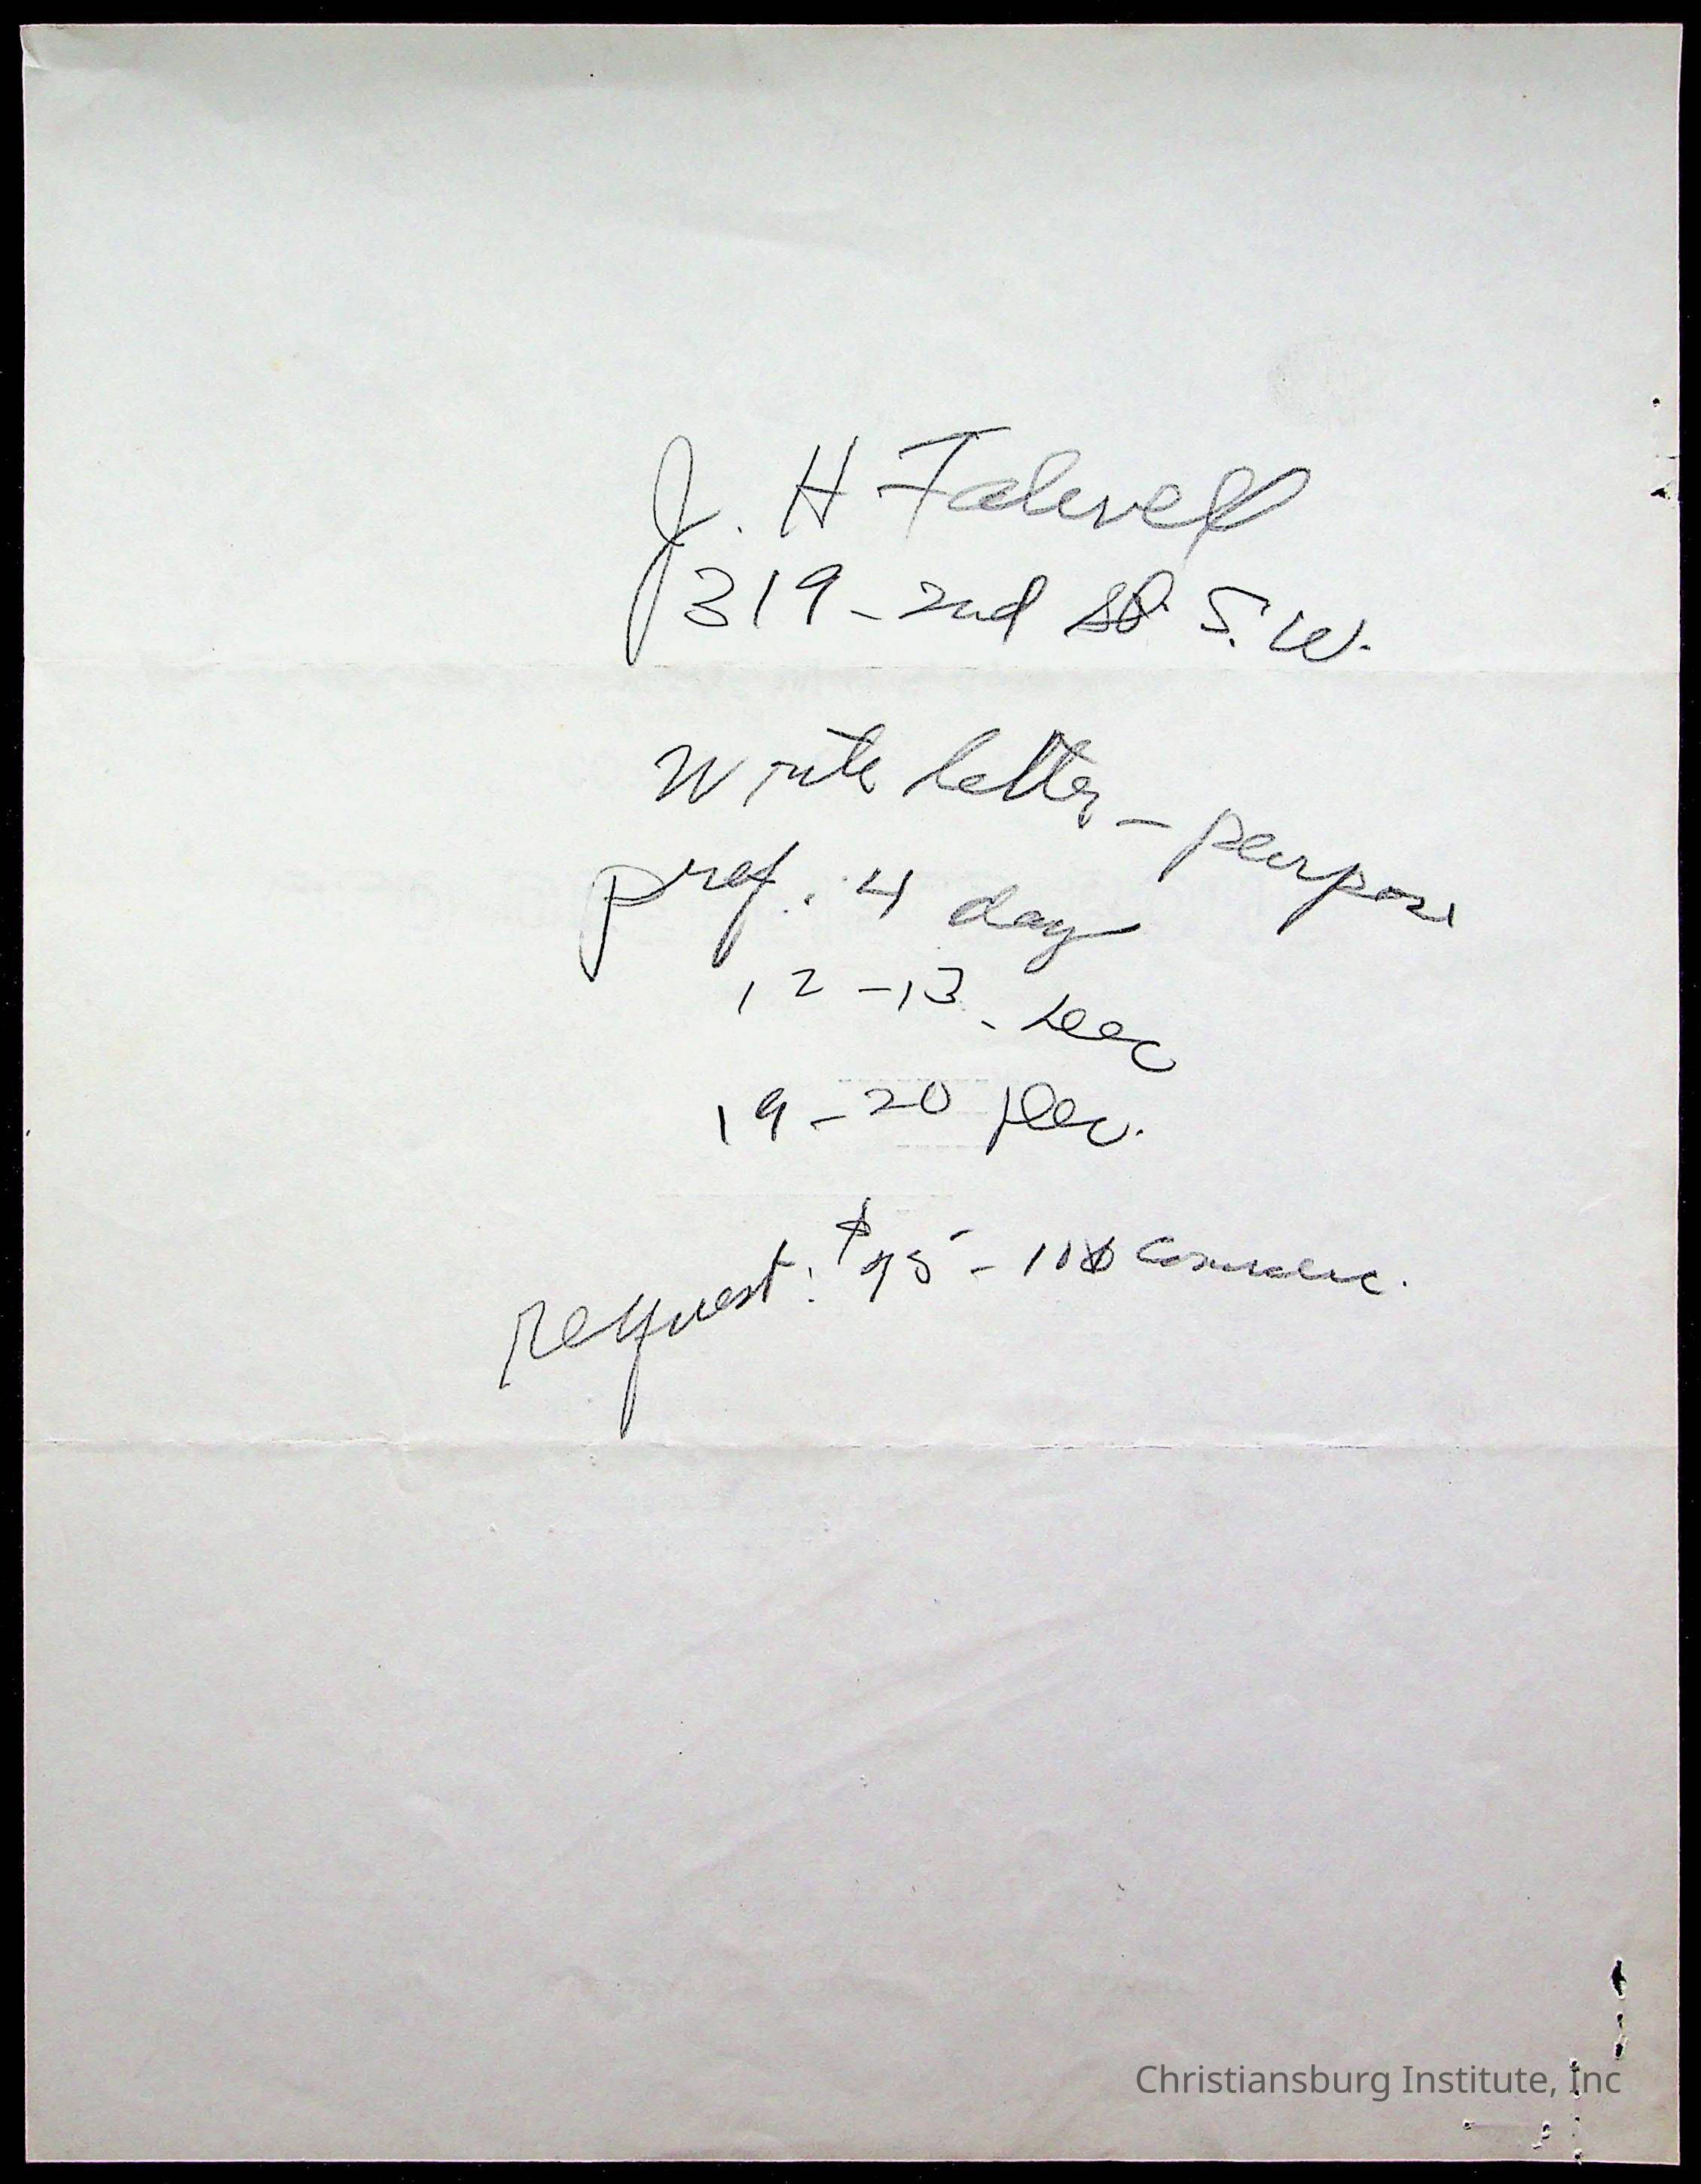 J. H Falwell
319 - 2nd St. S. W.
Write letter - purpose
pref. 4 day
12 - 13 - Dec
19 - 20 Dec.
request: $95 - 100
Christiansburg Institute, Inc